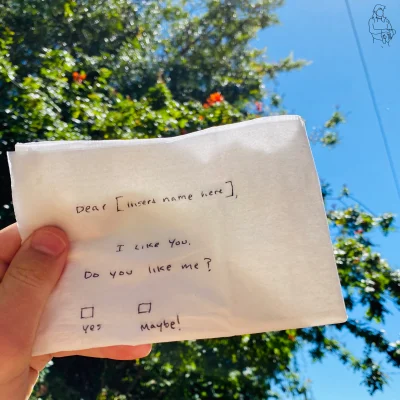 Dear [insert name here],
I like you.
Do you like me?
☐ ☐
yes Maybe!